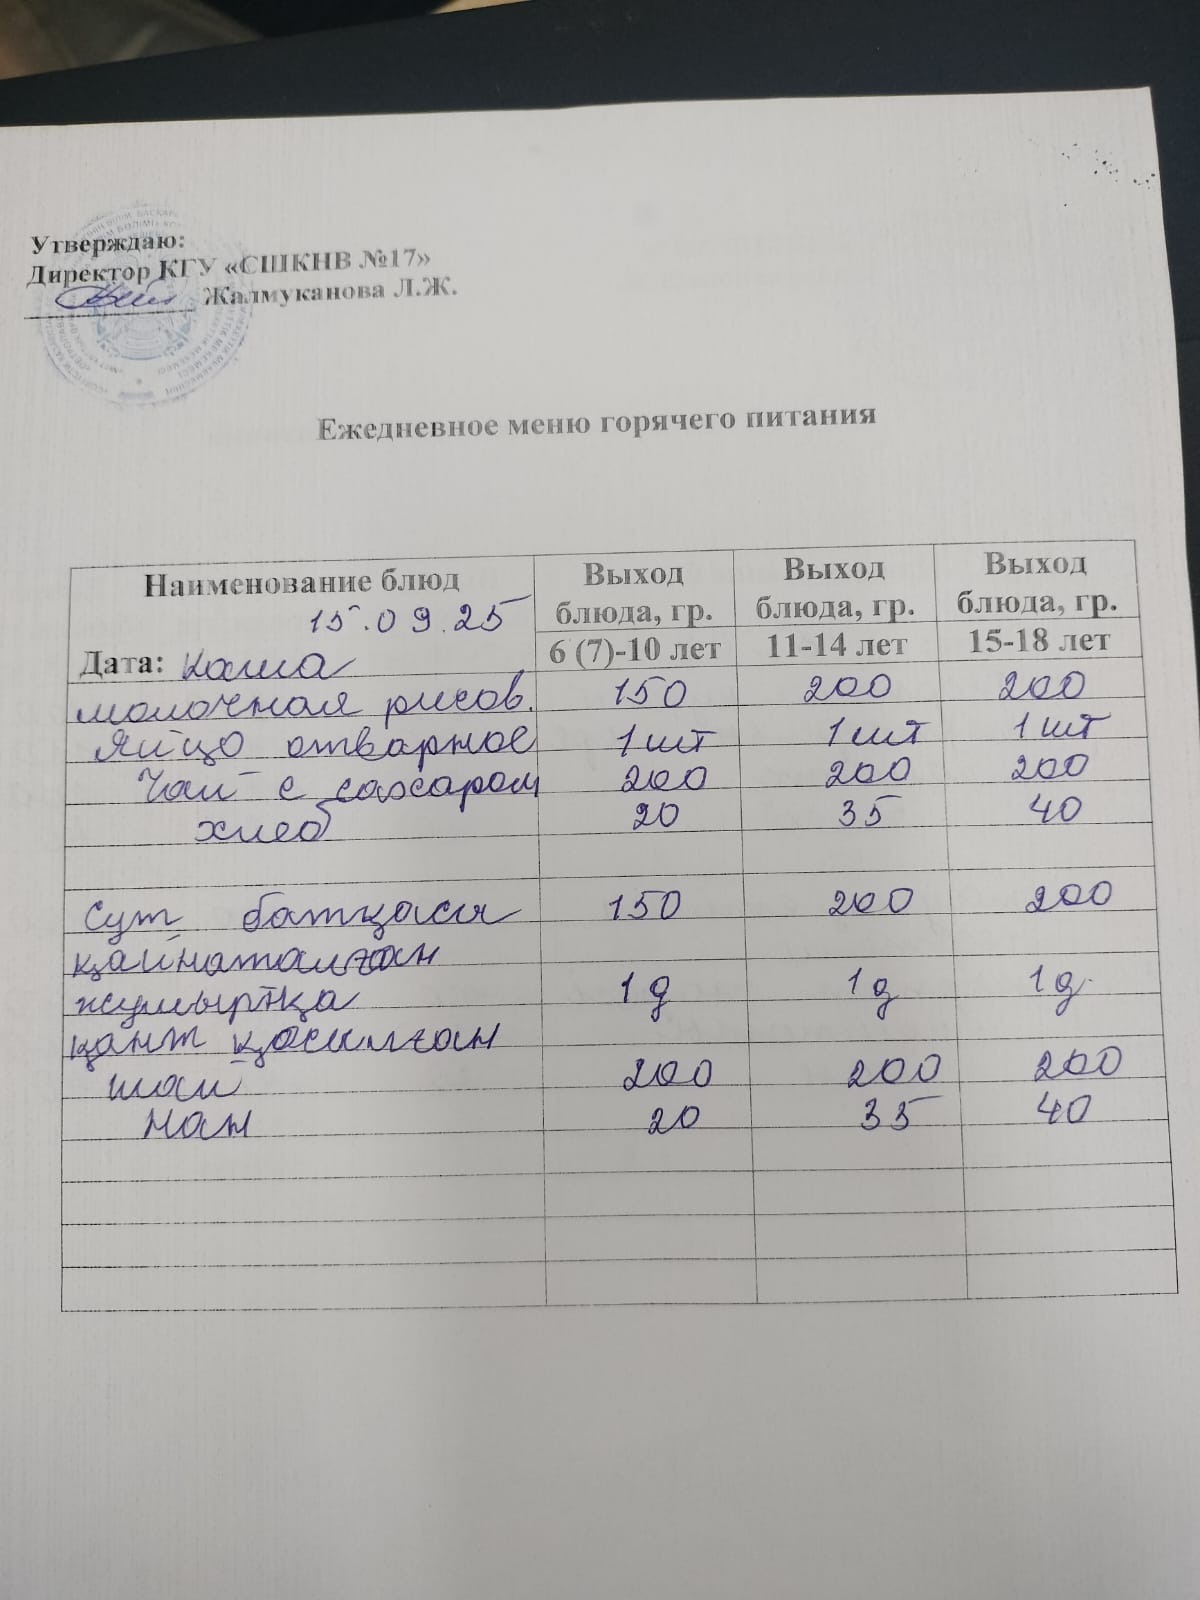 Утверждаю:
Директор КГУ «СШКНВ №17»
Жалмуканова Л.Ж.
Ежедневное меню горячего питания
Наименование блюд Выход блюда, гр. Выход блюда, гр. Выход блюда, гр.
15.09.25
Дата: Каша 6 (7)-10 лет 11-14 лет 15-18 лет
молочная рисов. 150 200 200
Яйцо отварное 1 шт 1 шт 1 шт
Чай с сахаром 200 200 200
хлеб 20 35 40
Сүт ботқасы 150 200 200
қайнатылған
жұмыртқа 1 д 1 д 1 д.
қант қосылған
шай 200 200 200
нан 20 35 40